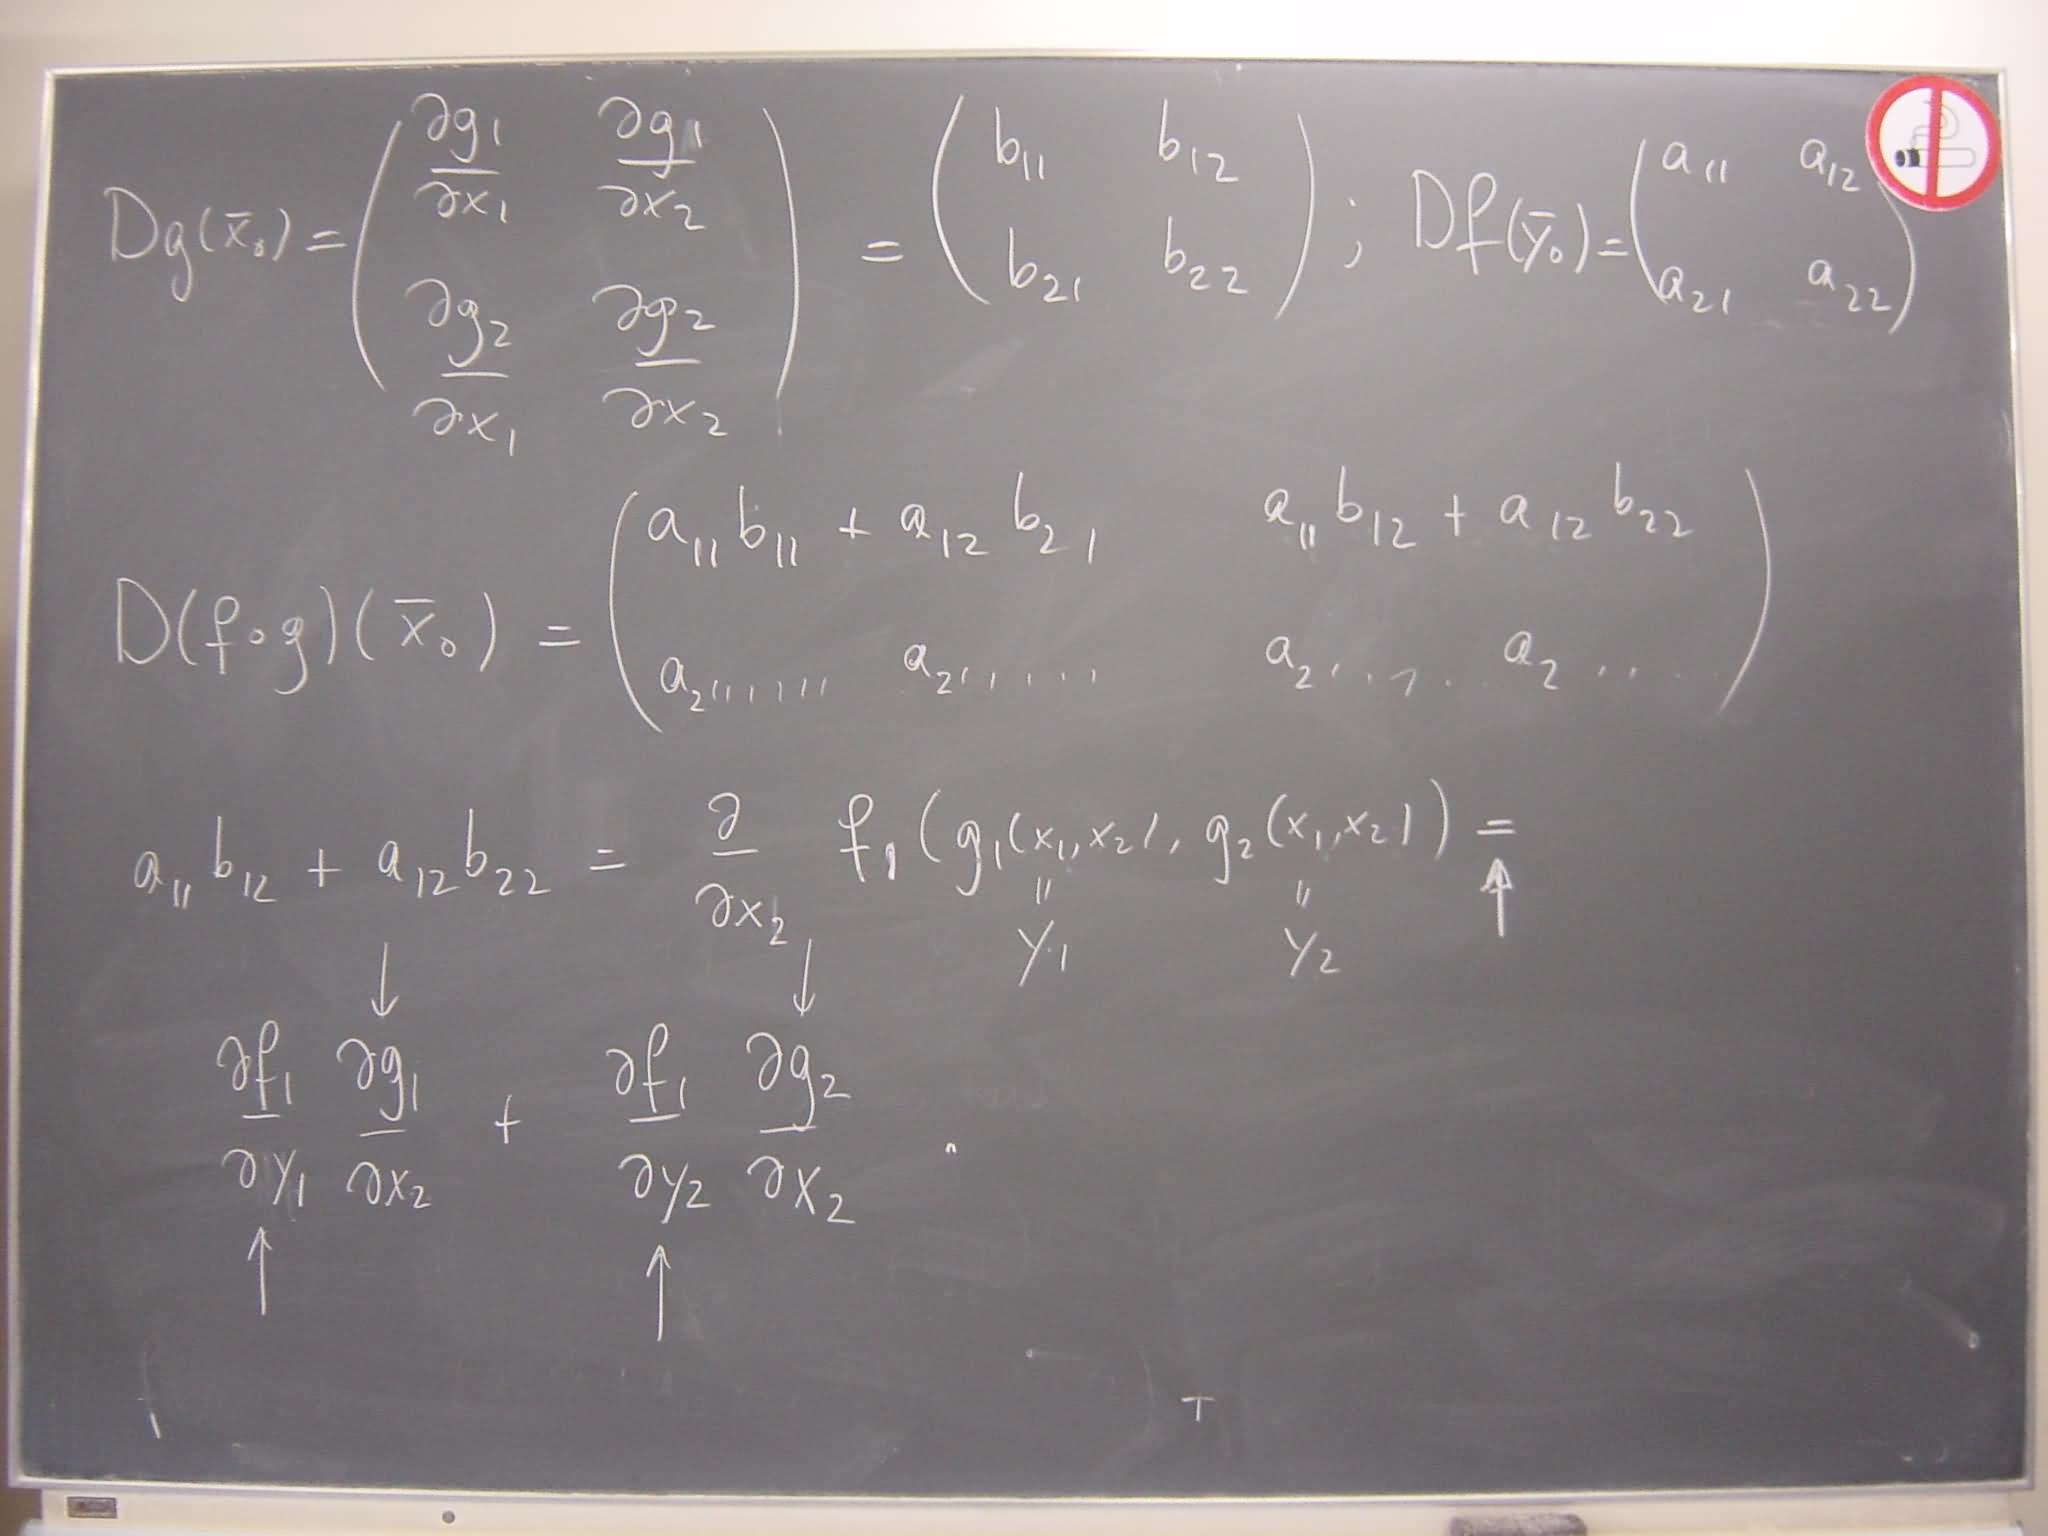 Dg(x̄₀) = ( ∂g₁/∂x₁ ∂g₁/∂x₂ ; ∂g₂/∂x₁ ∂g₂/∂x₂ ) = ( b₁₁ b₁₂ ; b₂₁ b₂₂ ) ; Df(ȳ₀) = ( a₁₁ a₁₂ ; a₂₁ a₂₂ )
D(f∘g)(x̄₀) = ( a₁₁b₁₁ + a₁₂b₂₁ a₁₁b₁₂ + a₁₂b₂₂ ; a₂...... a₂...... a₂..... a₂..... )
a₁₁b₁₂ + a₁₂b₂₂ = ∂/∂x₂ f₁(g₁(x₁,x₂), g₂(x₁,x₂)) =
↓ ↓ " y₁ " y₂ ↑
∂f₁/∂y₁ ∂g₁/∂x₂ + ∂f₁/∂y₂ ∂g₂/∂x₂ .
↑ ↑